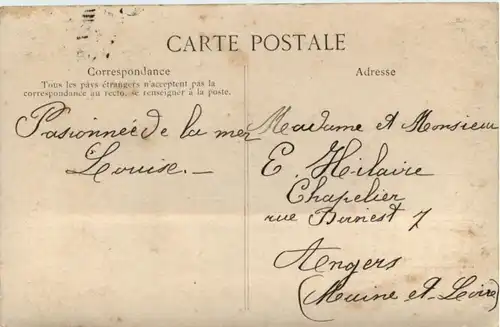 CARTE POSTALE
Correspondance
Tous les pays étrangers n'acceptent pas la
correspondance au recto, se renseigner à la poste.
Pasionnée de la mer
Louise._
Adresse
Madame et Monsieur
E. Hilaire
Chapelier
rue 7
Angers
(Maine et-Loire)